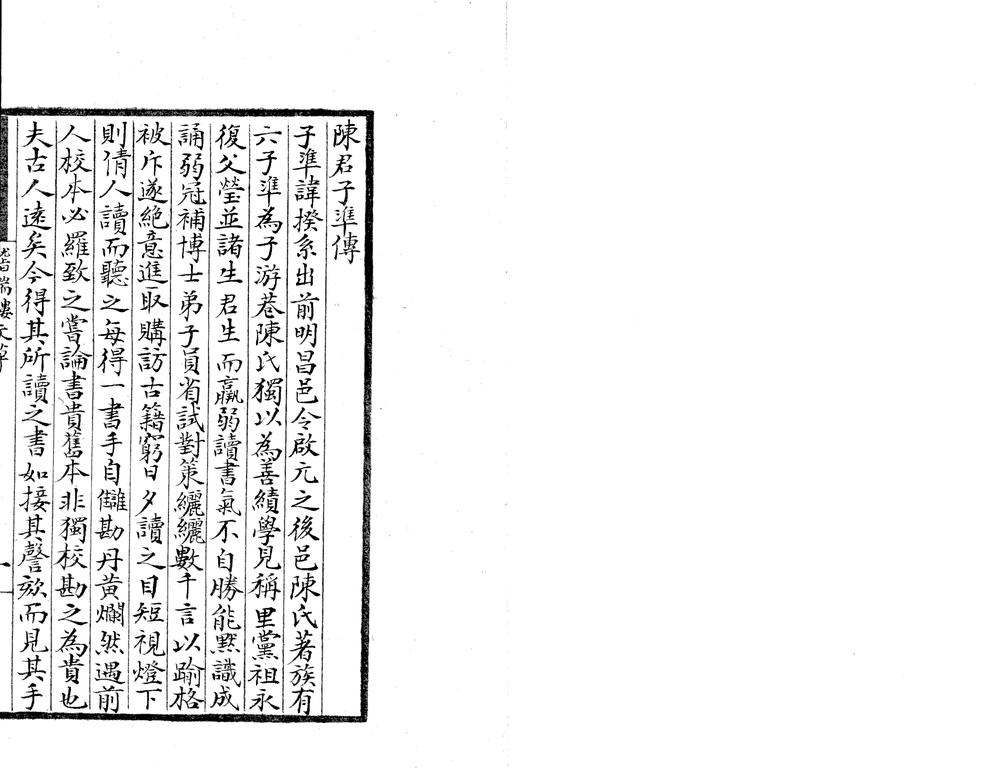 陳君子準傳
子準諱揆系出前明昌邑令啟元之後邑陳氏著族有
六子準為子游巷陳氏獨以為善績學見稱里黨祖永
復父瑩並諸生君生而羸弱讀書氣不自勝能默識成
誦弱冠補博士弟子員省試對策纚纚數千言以踰格
被斥遂絕意進取購訪古籍窮日夕讀之目短視燈下
則倩人讀而聽之每得一書手自讎勘丹黃爛然遇前
人校本必羅致之嘗論書貴舊本非獨校勘之為貴也
夫古人遠矣今得其所讀之書如接其謦欬而見其手
稽瑞樓文草
一